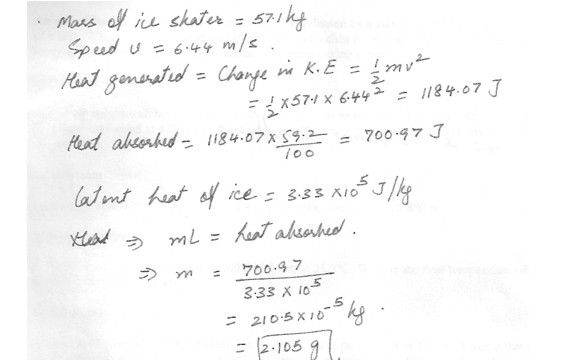 . Mass of ice skater = 57.1 kg
Speed v = 6.44 m/s .
Heat generated = Change in K.E = 1/2 mv²
= 1/2 × 57.1 × 6.44² = 1184.07 J
Heat absorbed = 1184.07 × 59.2/100 = 700.97 J
latent heat of ice = 3.33 × 10⁵ J/kg
⇒ mL = heat absorbed .
⇒ m = 700.97 / 3.33 × 10⁵
= 210.5 × 10⁻⁵ kg .
= 2.105 g